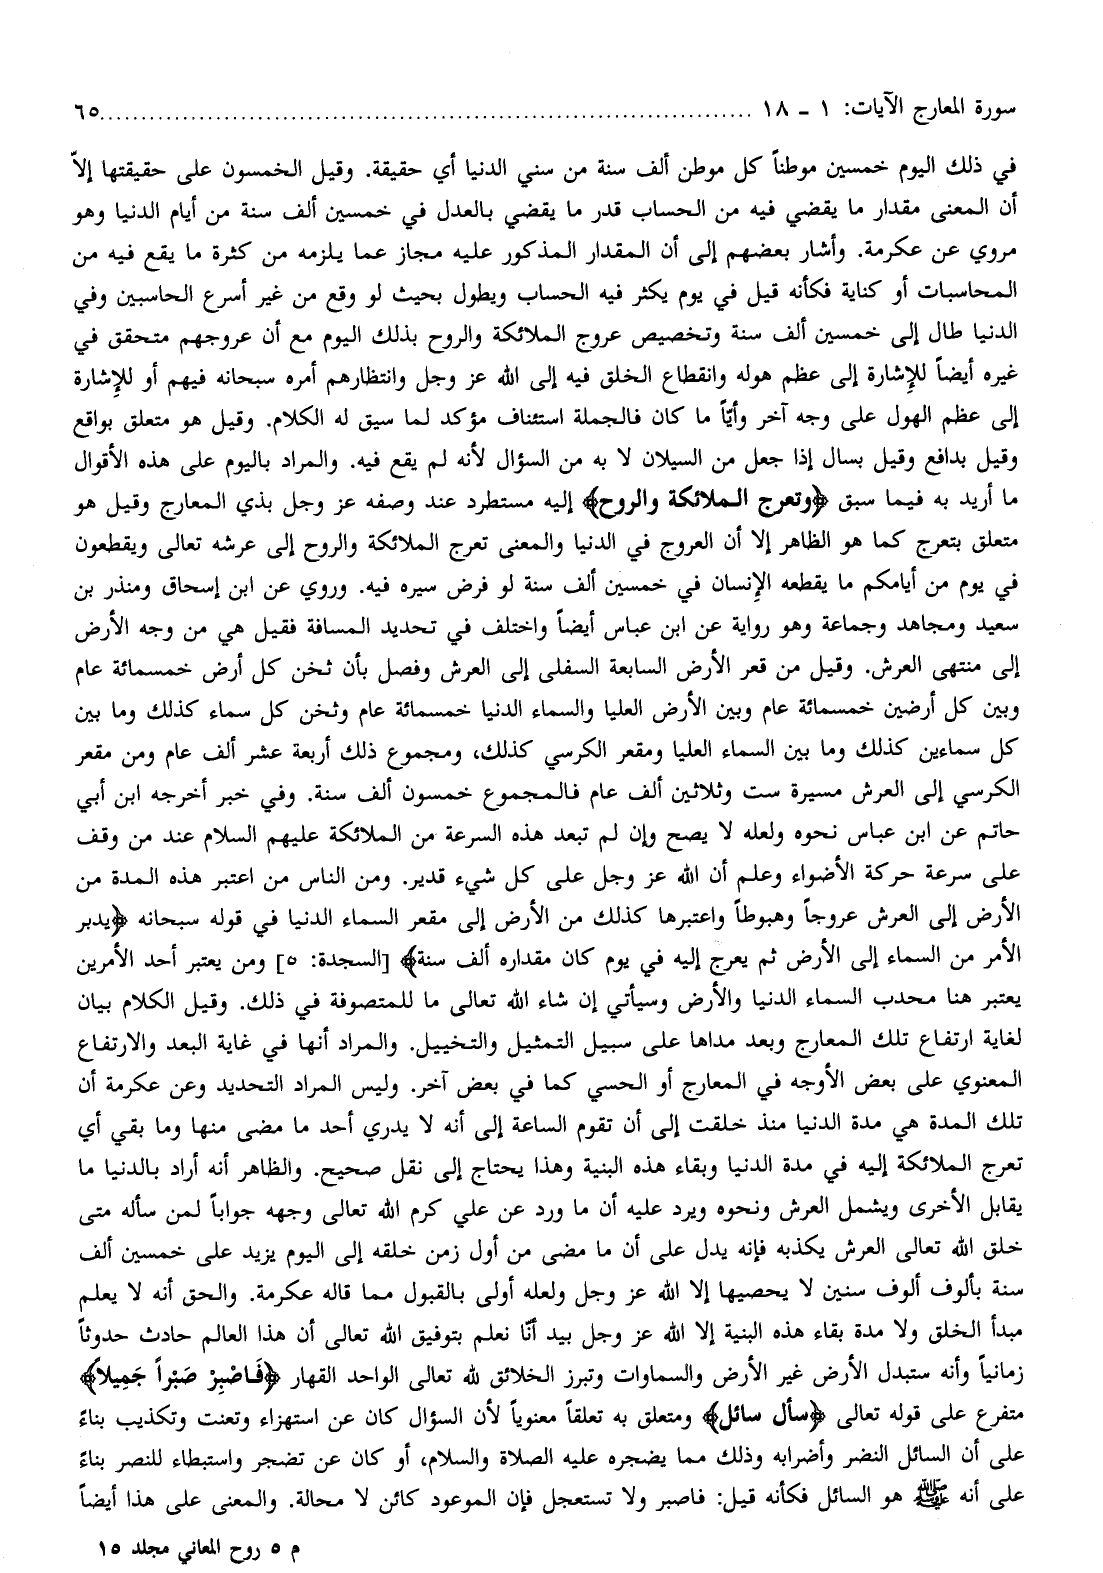 سورة المعارج الآيات: ١ ـ ١٨ ............................................................ ٦٥
في ذلك اليوم خمسين موطناً كل موطن ألف سنة من سني الدنيا أي حقيقة. وقيل الخمسون على حقيقتها إلاّ
أن المعنى مقدار ما يقضي فيه من الحساب قدر ما يقضي بالعدل في خمسين ألف سنة من أيام الدنيا وهو
مروي عن عكرمة. وأشار بعضهم إلى أن المقدار المذكور عليه مجاز عما يلزمه من كثرة ما يقع فيه من
المحاسبات أو كناية فكأنه قيل في يوم يكثر فيه الحساب ويطول بحيث لو وقع من غير أسرع الحاسبين وفي
الدنيا طال إلى خمسين ألف سنة وتخصيص عروج الملائكة والروح بذلك اليوم مع أن عروجهم متحقق في
غيره أيضاً للإشارة إلى عظم هوله وانقطاع الخلق فيه إلى الله عز وجل وانتظارهم أمره سبحانه فيهم أو للإشارة
إلى عظم الهول على وجه آخر وأيّاً ما كان فالجملة استئناف مؤكد لما سيق له الكلام. وقيل هو متعلق بواقع
وقيل بدافع وقيل بسال إذا جعل من السيلان لا به من السؤال لأنه لم يقع فيه. والمراد باليوم على هذه الأقوال
ما أريد به فيما سبق ﴿وتعرج الملائكة والروح﴾ إليه مستطرد عند وصفه عز وجل بذي المعارج وقيل هو
متعلق بتعرج كما هو الظاهر إلا أن العروج في الدنيا والمعنى تعرج الملائكة والروح إلى عرشه تعالى ويقطعون
في يوم من أيامكم ما يقطعه الإنسان في خمسين ألف سنة لو فرض سيره فيه. وروي عن ابن إسحاق ومنذر بن
سعيد ومجاهد وجماعة وهو رواية عن ابن عباس أيضاً واختلف في تحديد المسافة فقيل هي من وجه الأرض
إلى منتهى العرش. وقيل من قعر الأرض السابعة السفلى إلى العرش وفصل بأن ثخن كل أرض خمسمائة عام
وبين كل أرضين خمسمائة عام وبين الأرض العليا والسماء الدنيا خمسمائة عام وثخن كل سماء كذلك وما بين
كل سماءين كذلك وما بين السماء العليا ومقعر الكرسي كذلك، ومجموع ذلك أربعة عشر ألف عام ومن مقعر
الكرسي إلى العرش مسيرة ست وثلاثين ألف عام فالمجموع خمسون ألف سنة. وفي خبر أخرجه ابن أبي
حاتم عن ابن عباس نحوه ولعله لا يصح وإن لم تبعد هذه السرعة من الملائكة عليهم السلام عند من وقف
على سرعة حركة الأضواء وعلم أن الله عز وجل على كل شيء قدير. ومن الناس من اعتبر هذه المدة من
الأرض إلى العرش عروجاً وهبوطاً واعتبرها كذلك من الأرض إلى مقعر السماء الدنيا في قوله سبحانه ﴿يدبر
الأمر من السماء إلى الأرض ثم يعرج إليه في يوم كان مقداره ألف سنة﴾ [السجدة: ٥] ومن يعتبر أحد الأمرين
يعتبر هنا محدب السماء الدنيا والأرض وسيأتي إن شاء الله تعالى ما للمتصوفة في ذلك. وقيل الكلام بيان
لغاية ارتفاع تلك المعارج وبعد مداها على سبيل التمثيل والتخييل. والمراد أنها في غاية البعد والارتفاع
المعنوي على بعض الأوجه في المعارج أو الحسي كما في بعض آخر. وليس المراد التحديد وعن عكرمة أن
تلك المدة هي مدة الدنيا منذ خلقت إلى أن تقوم الساعة إلى أنه لا يدري أحد ما مضى منها وما بقي أي
تعرج الملائكة إليه في مدة الدنيا وبقاء هذه البنية وهذا يحتاج إلى نقل صحيح. والظاهر أنه أراد بالدنيا ما
يقابل الأخرى ويشمل العرش ونحوه ويرد عليه أن ما ورد عن علي كرم الله تعالى وجهه جواباً لمن سأله متى
خلق الله تعالى العرش يكذبه فإنه يدل على أن ما مضى من أول زمن خلقه إلى اليوم يزيد على خمسين ألف
سنة بألوف ألوف سنين لا يحصيها إلا الله عز وجل ولعله أولى بالقبول مما قاله عكرمة. والحق أنه لا يعلم
مبدأ الخلق ولا مدة بقاء هذه البنية إلا الله عز وجل بيد أنّا نعلم بتوفيق الله تعالى أن هذا العالم حادث حدوثاً
زمانياً وأنه ستبدل الأرض غير الأرض والسماوات وتبرز الخلائق لله تعالى الواحد القهار ﴿فَاصْبِرْ صَبْراً جَمِيلاً﴾
متفرع على قوله تعالى ﴿سأل سائل﴾ ومتعلق به تعلقاً معنوياً لأن السؤال كان عن استهزاء وتعنت وتكذيب بناءً
على أن السائل النضر وأضرابه وذلك مما يضجره عليه الصلاة والسلام، أو كان عن تضجر واستبطاء للنصر بناءً
على أنه ﷺ هو السائل فكأنه قيل: فاصبر ولا تستعجل فإن الموعود كائن لا محالة. والمعنى على هذا أيضاً
م ٥ روح المعاني مجلد ١٥